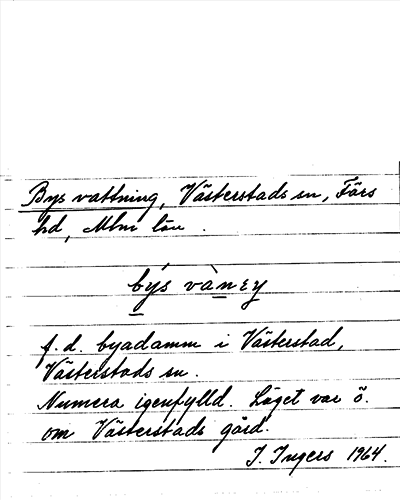 Bys vattning, Västerstads sn, Färs
hd, Mlm län.
býs vànεy
f.d. byadamm i Västerstad,
Västerstads sn.
Numera igenfylld. Läget var ö.
om Västerstads gård.
I. Ingers 1964.